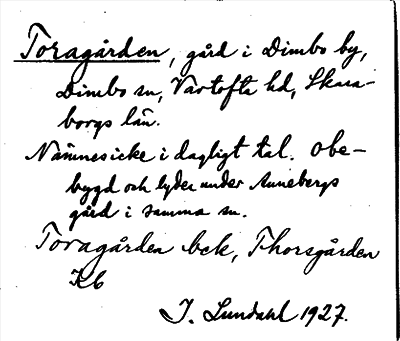 Toragården, gård i Dimbo by,
Dimbo sn, Vartofta hd, Skara-
borgs län.
Nämnes icke i dagligt tal. Obe-
bygd och lyder under Annebergs
gård i samma sn.
Toragården bek, Thorsgården
Jb
I. Lundahl 1927.